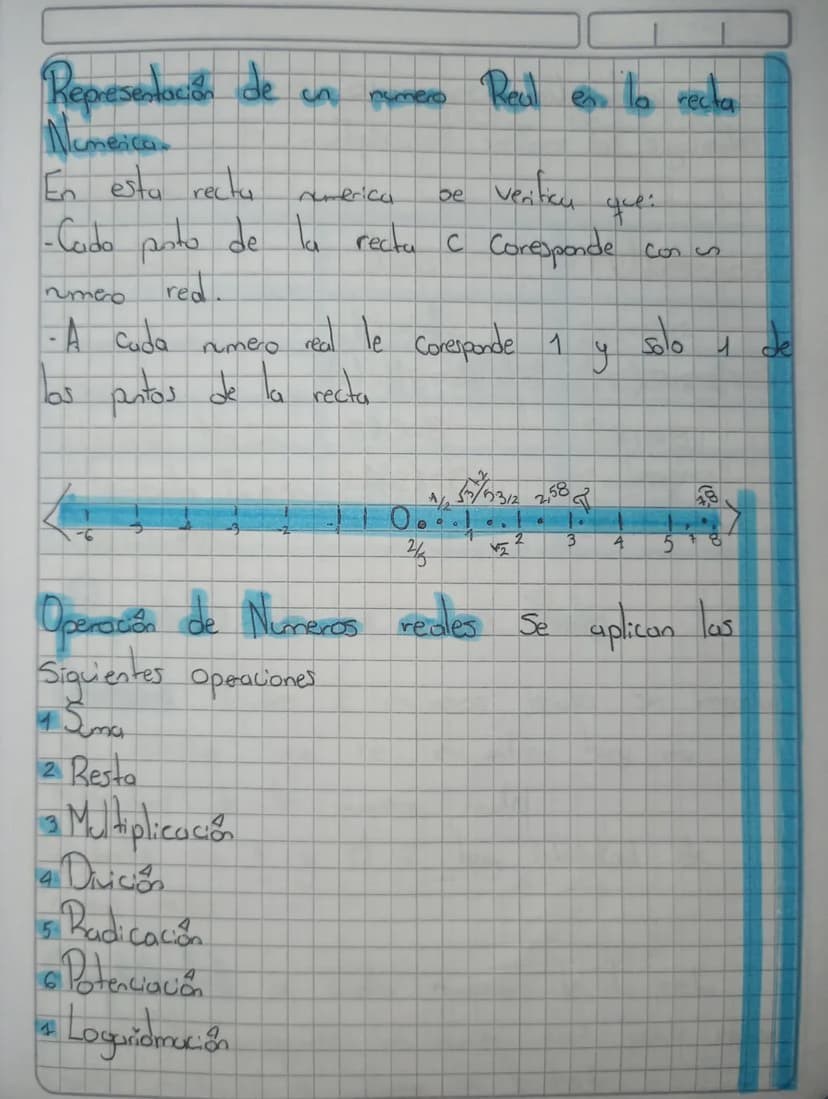 Representación de un numero Real en la recta
Numerica.
En esta recta numerica se verifica que:
-Cada pnto de la recta C Coresponde con un
numero real.
-A cada numero real le Coresponde 1 y solo 1 de
los pntos de la recta
1/2 3/2 2,58
-6 -3 -2 -1 0 1 2 3 4 5 8
2/5 √2
Operación de Numeros reales Se aplican las
Siguientes operaciones
1 Suma
2 Resta
3 Multiplicación
4 Divición
5 Radicación
6 Potenciación
7 Logaridmación